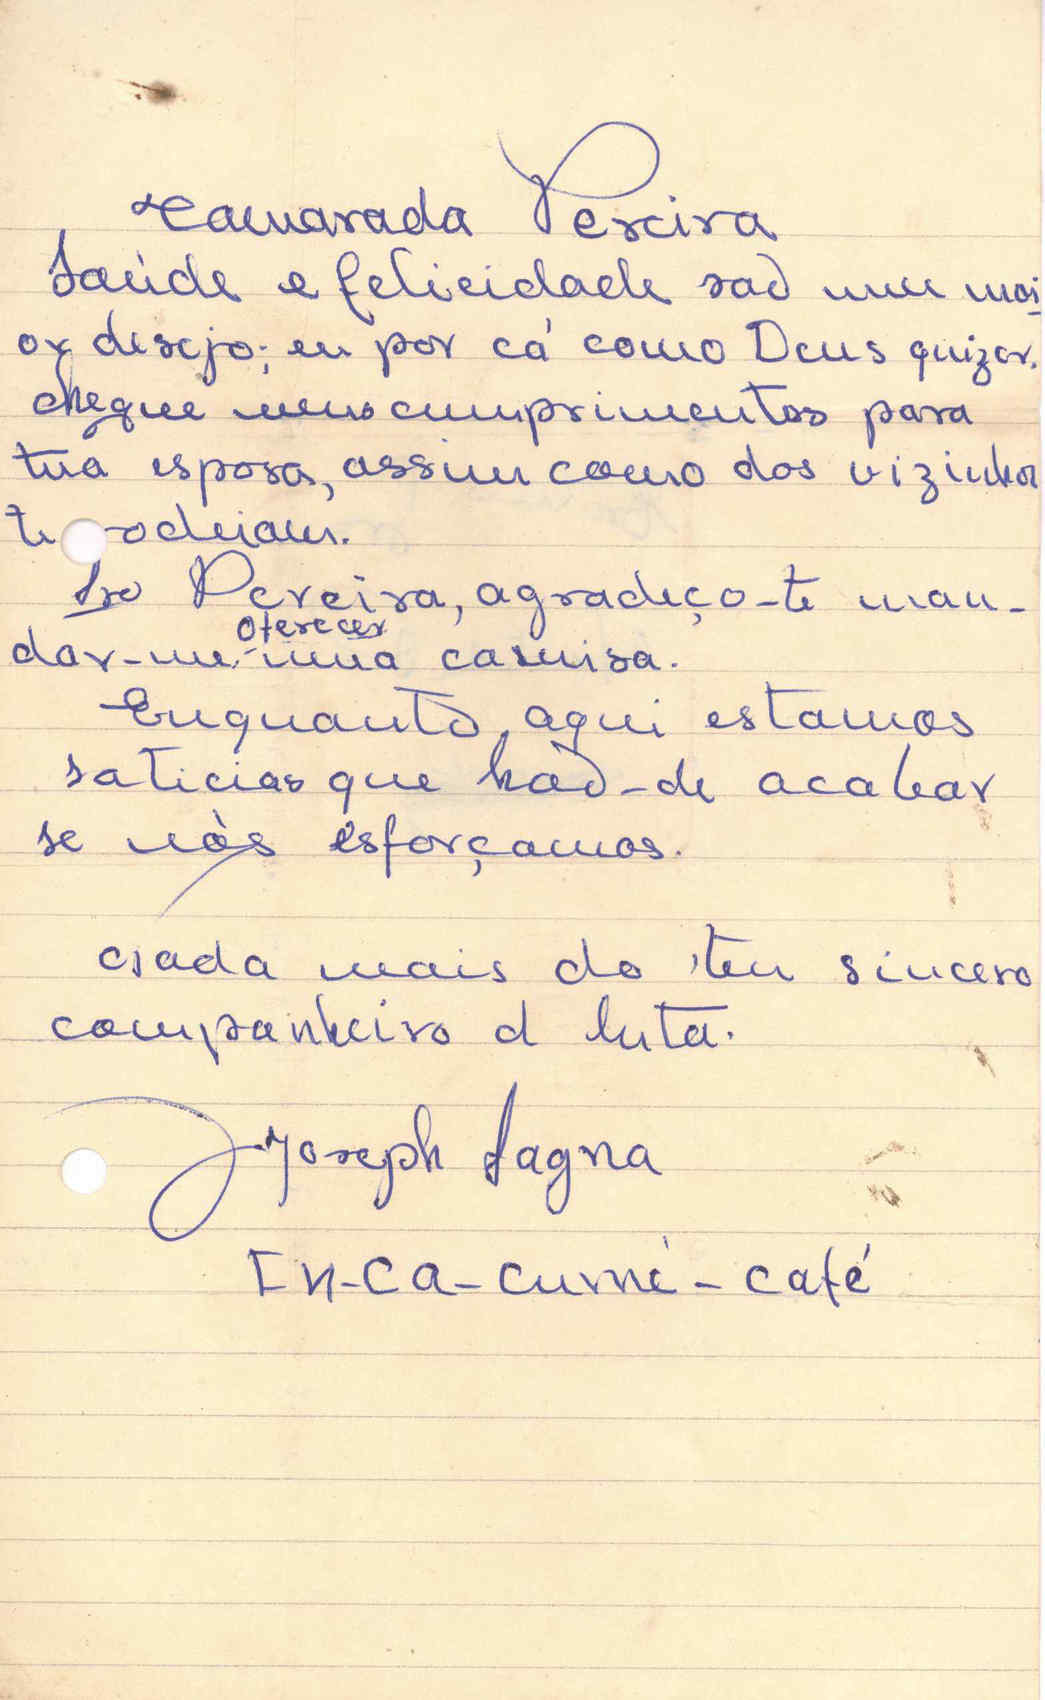 Camarada Pereira
Saúde e felicidade saõ meu mai
or desejo; eu por cá como Deus quizer.
chegue meus cumprimentos para
tua esposa, assim como dos vizinhos
te rodeiam.
Sro Pereira, agradeço-te man-
oferecer
dar-me uma camisa.
Enquanto, aqui estamos
saticias que haõ-de acabar
se nós esforçamos.
Nada mais do teu sincero
companheiro d luta.
Joseph Sagna
En-Ca-Cumé-Café